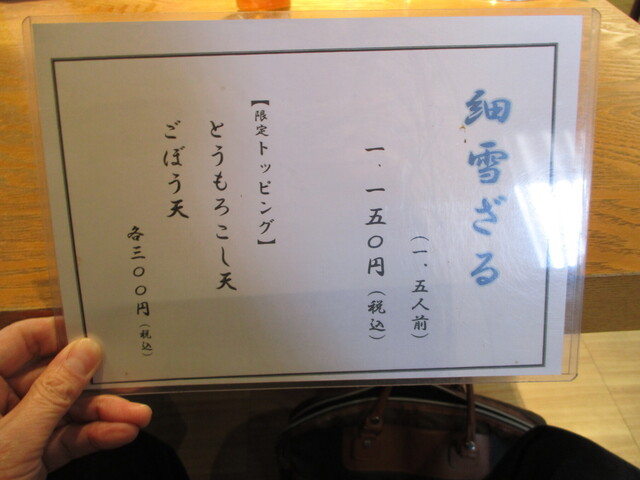 細雪ざる
（一．五人前）
一．一五〇円（税込）
【限定トッピング】
とうもろこし天
ごぼう天
各三〇〇円（税込）